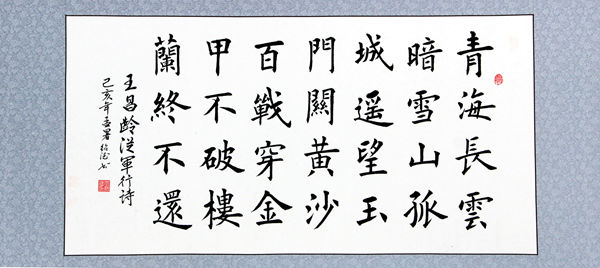 青海長雲
暗雪山孤
城遥望玉
門關黃沙
百戰穿金
甲不破樓
蘭終不還
王昌龄從軍行诗
己亥年孟暑